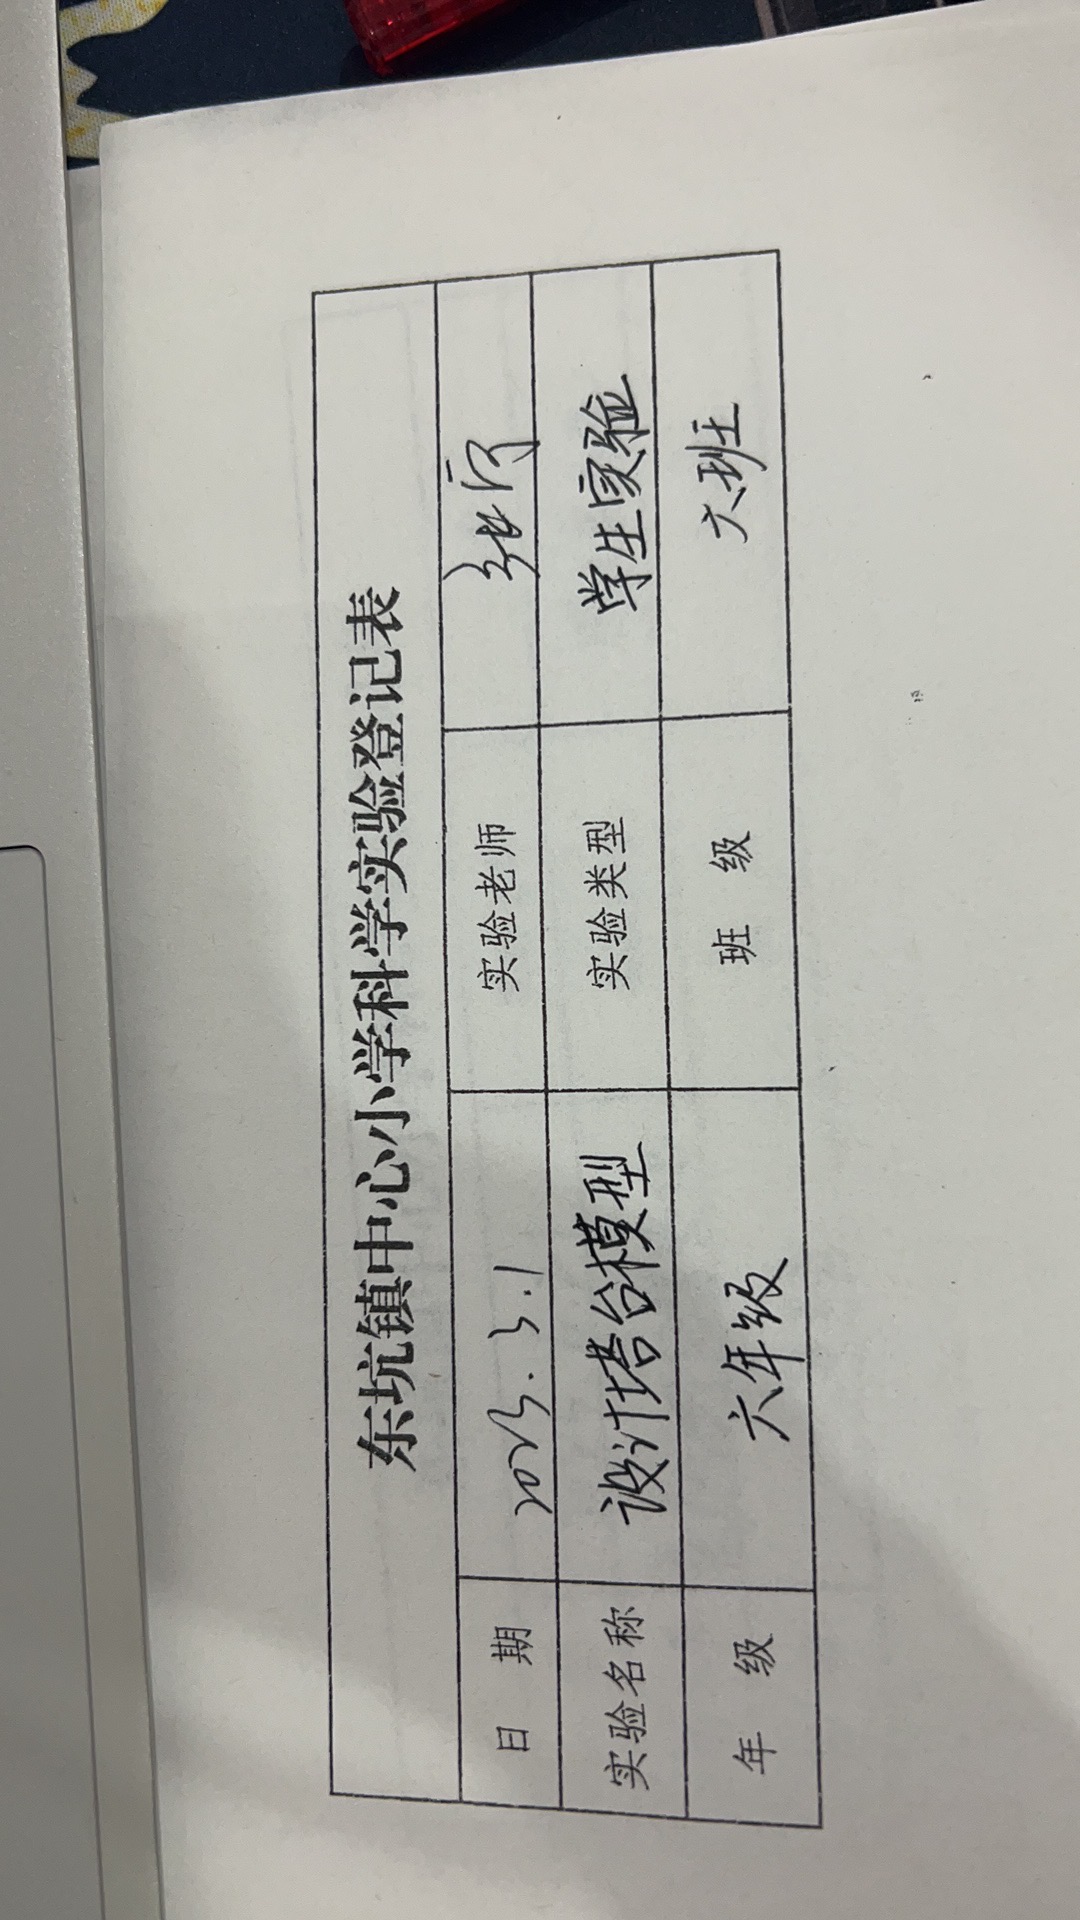 东坑镇中心小学科学实验登记表
日 期 2023.3.1 实验老师
实验名称 设计塔台模型 实验类型 学生实验
年 级 六年级 班 级 六班